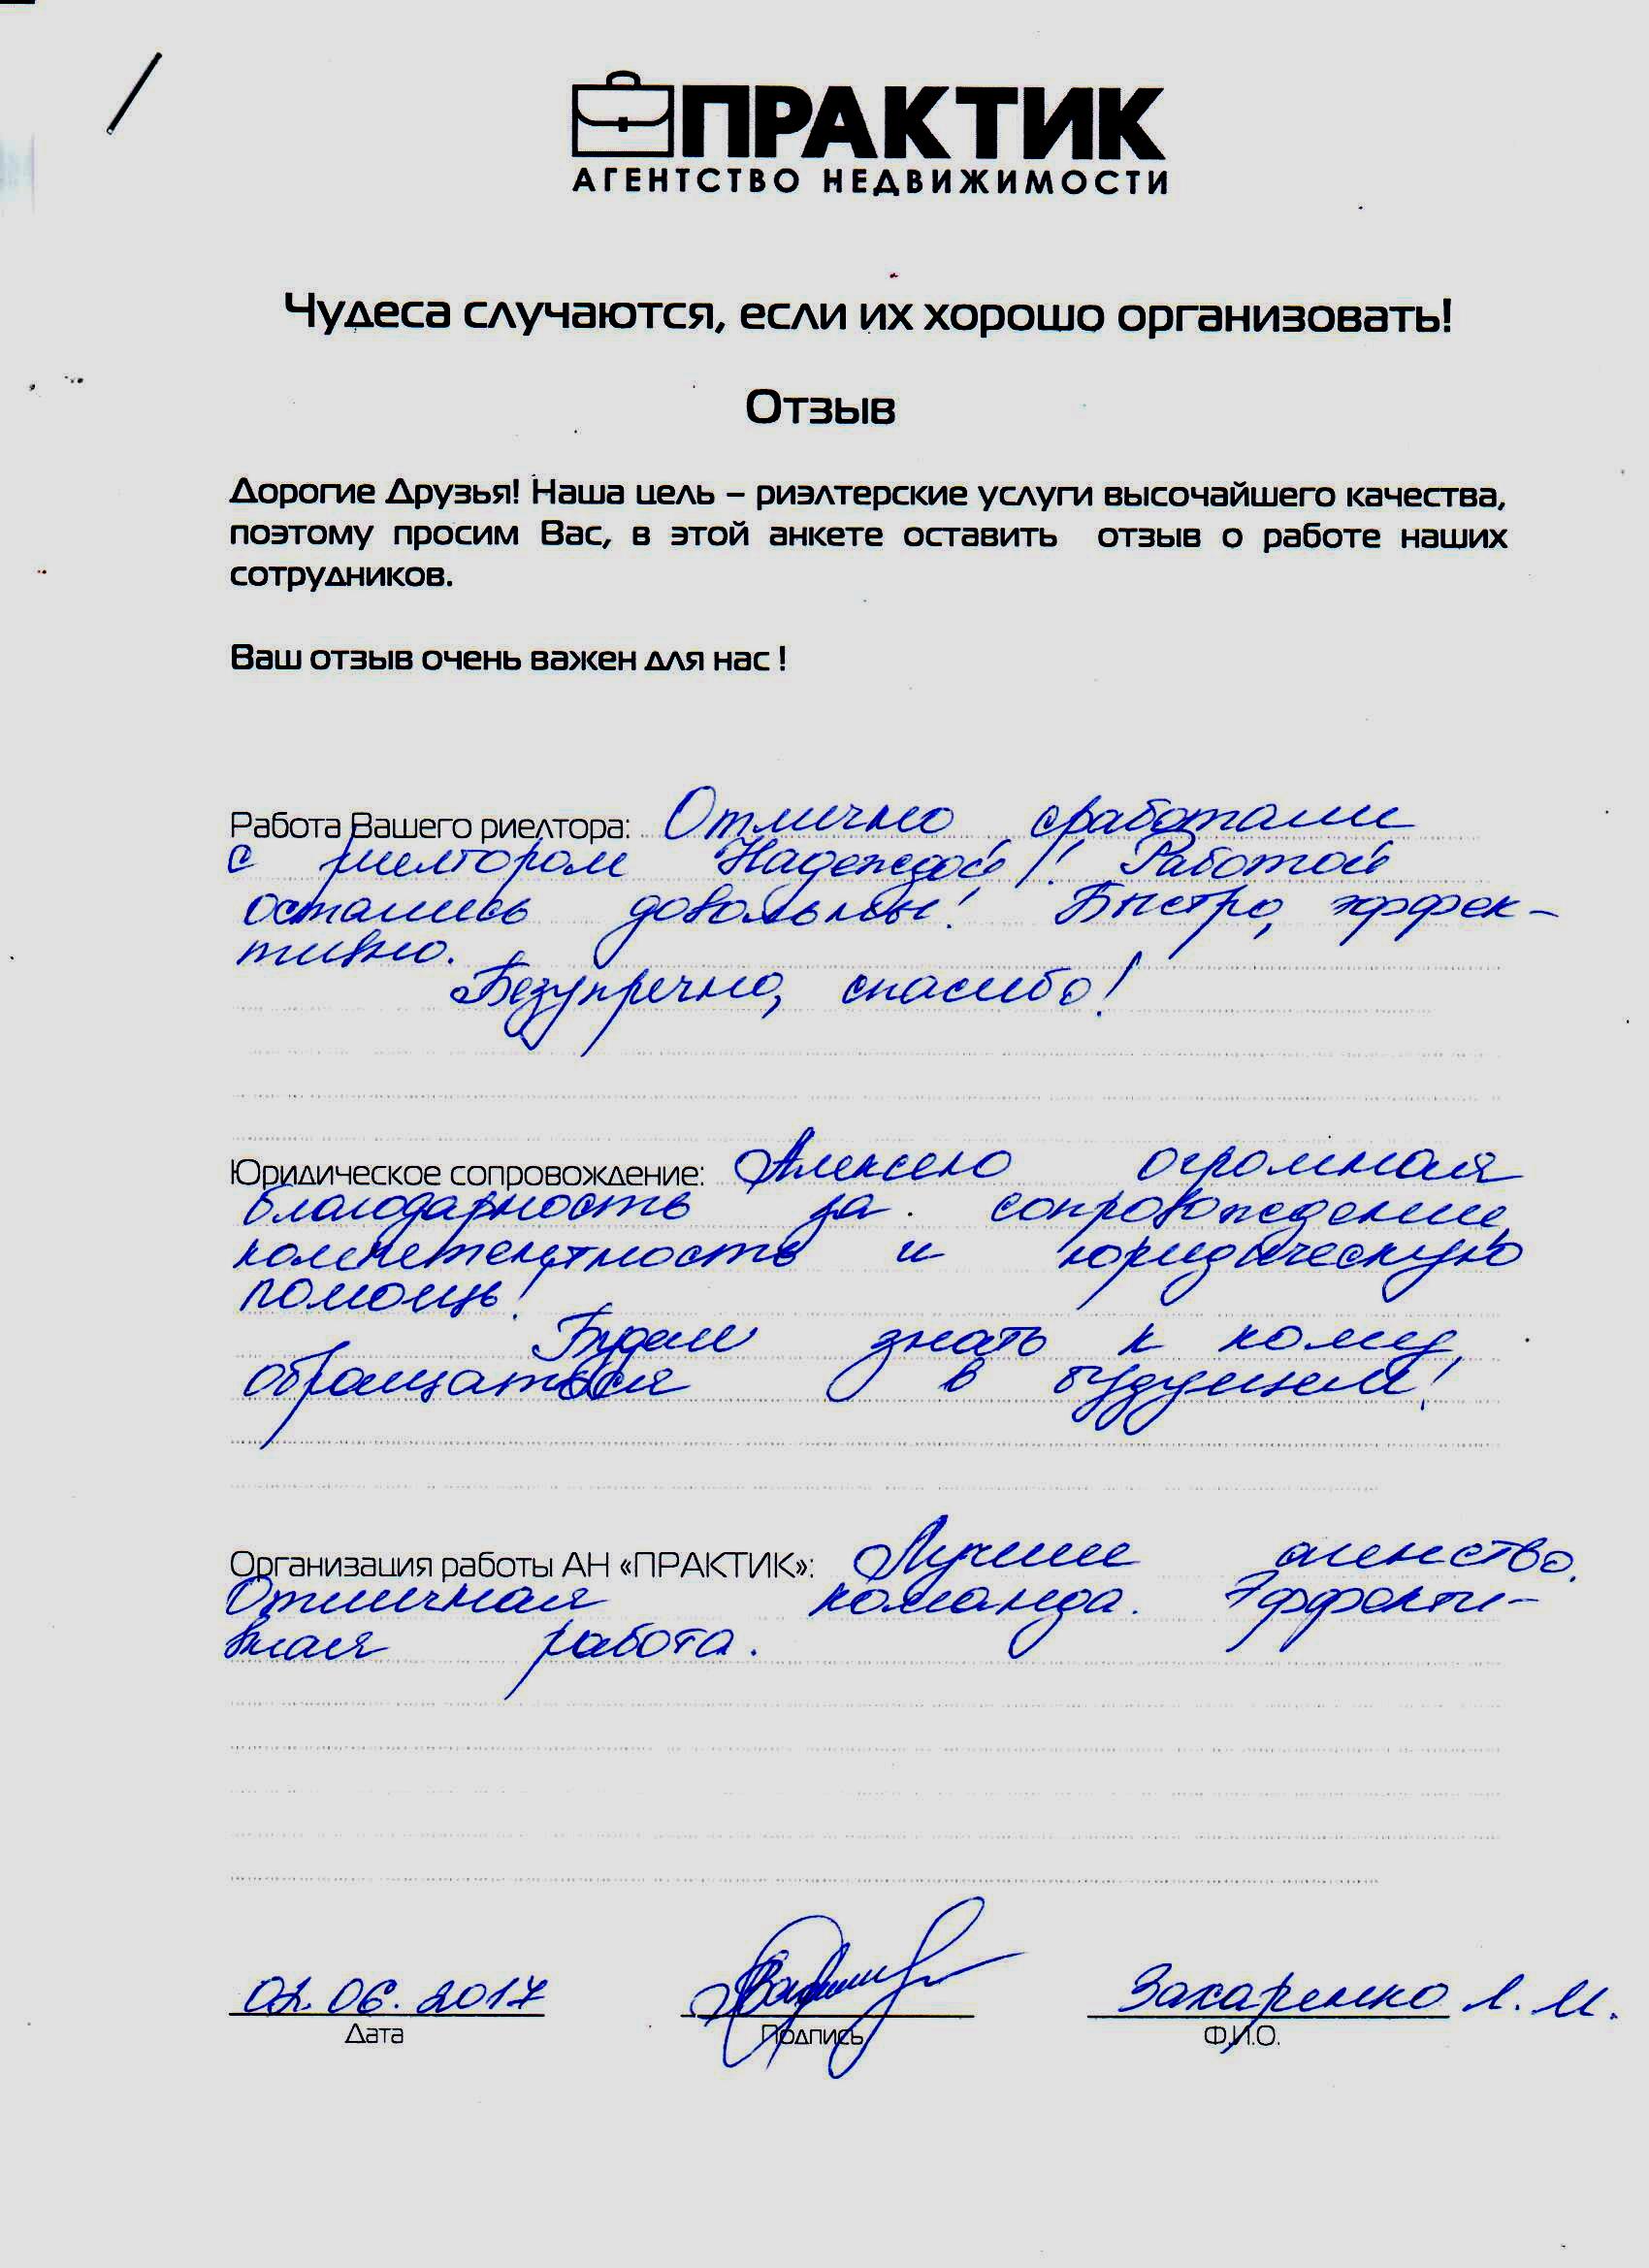 ПРАКТИК
АГЕНТСТВО НЕДВИЖИМОСТИ
Чудеса случаются, если их хорошо организовать!
Отзыв
Дорогие Друзья! Наша цель – риэлтерские услуги высочайшего качества,
поэтому просим Вас, в этой анкете оставить отзыв о работе наших
сотрудников.
Ваш отзыв очень важен для нас !
Работа Вашего риелтора: Отлично сработали
с риелтором Надеждой! Работой
остались довольны! Быстро, эффек-
тивно.
Безупречно, спасибо!
Юридическое сопровождение: Алексею огромная
благодарность за сопровождение,
компетентность и юридическую
помощь!
Будем знать к кому
обращаться в будущем!
Организация работы АН «ПРАКТИК»: Лучшее агенство.
Отличная команда. Эффекти-
вная работа.
02.06.2017 Захаренко Л. И.
Дата Подпись Ф.И.О.